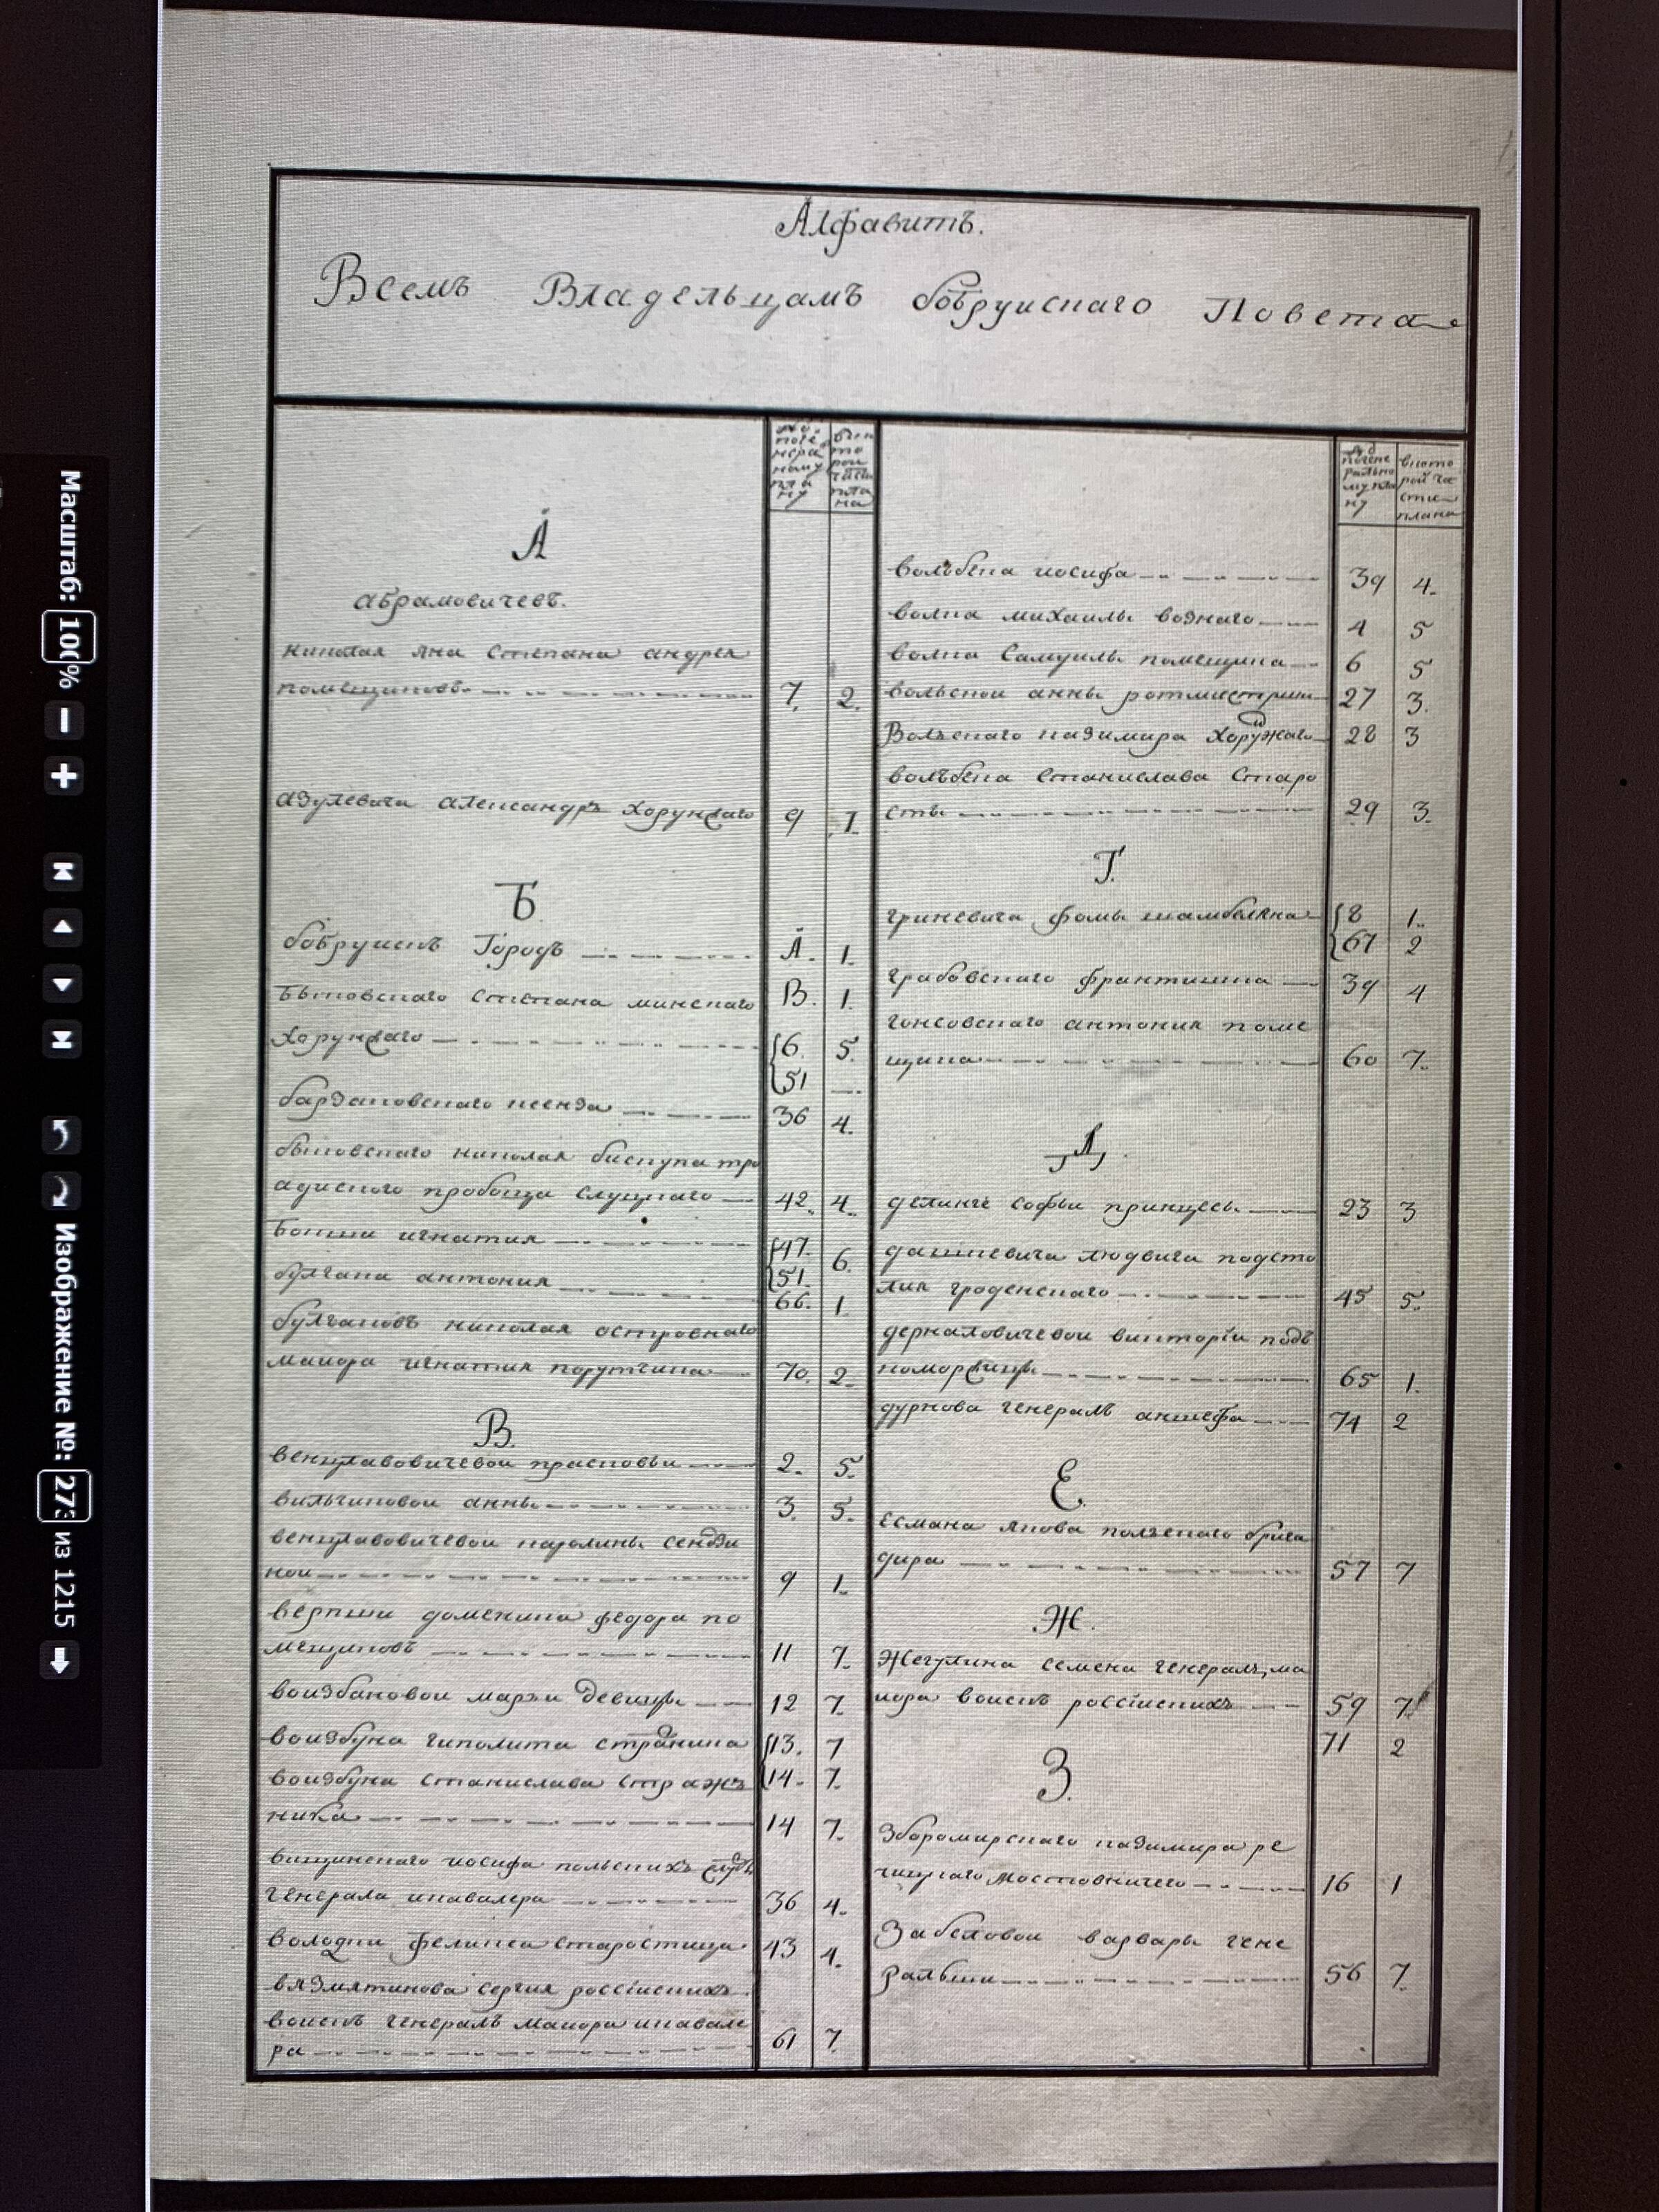 Алфавитъ.
Всемъ Владельцамъ бобруискаго Повета
№ по генеральному плану
в которой части плана
А
абрамовичевъ.
николая яна Степана андрея
помещиковъ 7. 2.
азулевича александръ хорунжаго 9 1.
Б
бобруискъ Городъ А. 1.
Быковскаго степана минскаго В. 1.
хорунжаго 6. 5.
51
36 4.
быковскаго николая бискупа тро
адиского пробоща слуцкаго 42. 4.
Бокши игнатия 47. 6.
51.
булгака антония 66. 1.
булгаковъ николая
маиора игнатия порутчика 70. 2.
В.
венцлавовичевои прасковьи 2. 5.
вильчиковои анны 3. 5.
венцлавовичевои каролины сендзи
нои 9 1.
верпши доменика федора по
мещиковъ 11 7.
воизбановои марэи девицы 12 7.
воизбуна гиполита 13. 7
14. 7.
воизбуна станислава стражъ
ника 14 7.
иосифа польскихъ
генерала икавалера 36 4.
володки феликса старостица 43 4.
вязмятинова сергия россiискихъ
воискъ генералъ маиора икавале
ра 61 7.
№ по генеральному плану
в которой части плана
иосифа 39 4.
волка михаилы вознаго 4 5
волка самуилы помещика 6 5
вольскои анны ротмистрши 27 3.
Вольскаго казимира хоружаго 28 3
станислава старо
сты 29 3.
Г.
гриневича фомы шамбеляна 8 1.
67 2
грабовскаго франтишка 39 4
гонсовскаго антония поме
щика 60 7.
Д.
делинге софьи принцесы 23 3
дашкевича людвига подсто
лия гроденскаго 45 5.
деркаловичевои викторiи подъ
коморжицы 65 1.
дурнова генералъ аншефа 74 2
Е.
есмана якова польскаго брига
дира 57 7
Ж.
жегулина семена генералъ, ма
иора воискъ россiискихъ 59 7.
71 2
З.
казимира ре
чицкаго мостовничего 16 1
Забеловои варвары гене
ральши 56 7.
Масштаб: 100%
Изображение №: 273 из 1215